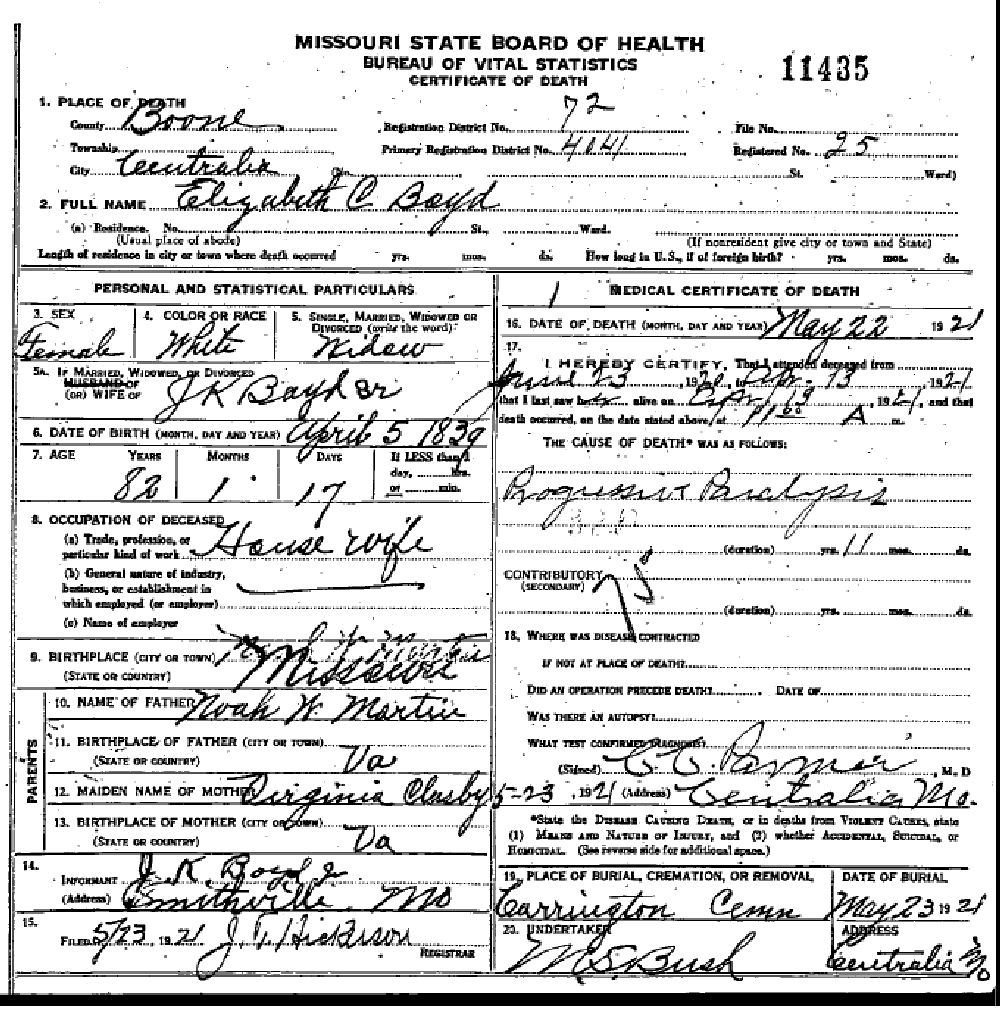 MISSOURI STATE BOARD OF HEALTH
BUREAU OF VITAL STATISTICS
CERTIFICATE OF DEATH
11435
1. PLACE OF DEATH
County Boone Registration District No. 72 File No.
Township Primary Registration District No. 4041 Registered No. 25
City Centralia No. St. Ward)
2. FULL NAME Elizabeth C Boyd
(a) Residence. No. St., Ward.
(Usual place of abode) (If nonresident give city or town and State)
Length of residence in city or town where death occurred yrs. mos. ds. How long in U.S., if of foreign birth? yrs. mos. ds.
PERSONAL AND STATISTICAL PARTICULARS
3. SEX 4. COLOR OR RACE 5. SINGLE, MARRIED, WIDOWED OR DIVORCED (write the word)
Female White Widow
5A. IF MARRIED, WIDOWED, OR DIVORCED
HUSBAND OF
(OR) WIFE OF J K Boyd Sr
6. DATE OF BIRTH (MONTH, DAY AND YEAR) April 5 1839
7. AGE YEARS MONTHS DAYS If LESS than 1
day, hrs.
82 1 17 or min.
8. OCCUPATION OF DECEASED
(a) Trade, profession, or
particular kind of work House wife
(b) General nature of industry,
business, or establishment in
which employed (or employer)
(c) Name of employer
9. BIRTHPLACE (CITY OR TOWN)
(STATE OR COUNTRY) Missouri
PARENTS
10. NAME OF FATHER Noah W. Martin
11. BIRTHPLACE OF FATHER (CITY OR TOWN)
(STATE OR COUNTRY) Va
12. MAIDEN NAME OF MOTHER Virginia Clasby
13. BIRTHPLACE OF MOTHER (CITY OR TOWN)
(STATE OR COUNTRY) Va
14.
INFORMANT J. K. Boyd Jr
(Address) Smithville Mo
15.
FILED 5/23, 1921 J. T. Hickerson
REGISTRAR
1 MEDICAL CERTIFICATE OF DEATH
16. DATE OF DEATH (MONTH, DAY AND YEAR) May 22 1921
17.
I HEREBY CERTIFY, That I attended deceased from
June 23, 1920, to Apr. 13 1921
that I last saw her alive on Apr 13, 1921, and that
death occurred, on the date stated above, at A m.
THE CAUSE OF DEATH* WAS AS FOLLOWS:
Progressive Paralysis
(duration) yrs. 11 mos. ds.
CONTRIBUTORY
(SECONDARY)
(duration) yrs. mos. ds.
18. WHERE WAS DISEASE CONTRACTED
IF NOT AT PLACE OF DEATH?
DID AN OPERATION PRECEDE DEATH? DATE OF
WAS THERE AN AUTOPSY?
WHAT TEST CONFIRMED DIAGNOSIS?
(Signed) M. D
5-23, 1921 (Address) Centralia Mo.
*State the DISEASE CAUSING DEATH, or in deaths from VIOLENT CAUSES, state
(1) MEANS AND NATURE OF INJURY, and (2) whether ACCIDENTAL, SUICIDAL, or
HOMICIDAL. (See reverse side for additional space.)
19. PLACE OF BURIAL, CREMATION, OR REMOVAL DATE OF BURIAL
Carrington Cemn May 23 1921
20. UNDERTAKER ADDRESS
M. S. Bush Centralia Mo